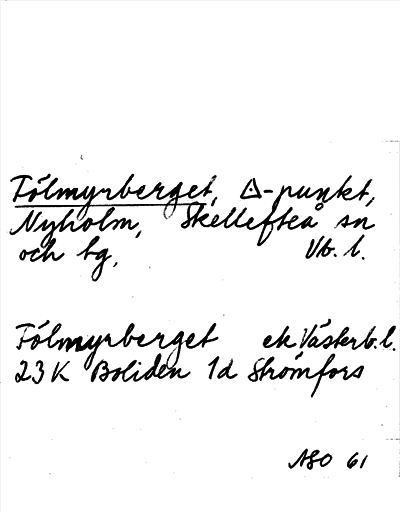 Tölmyrberget, △-punkt,
Nyholm, Skellefteå sn
och tg, Vb. l.
Tölmyrberget ek Västerb. l.
23 K Boliden 1d Strömfors
ASO 61